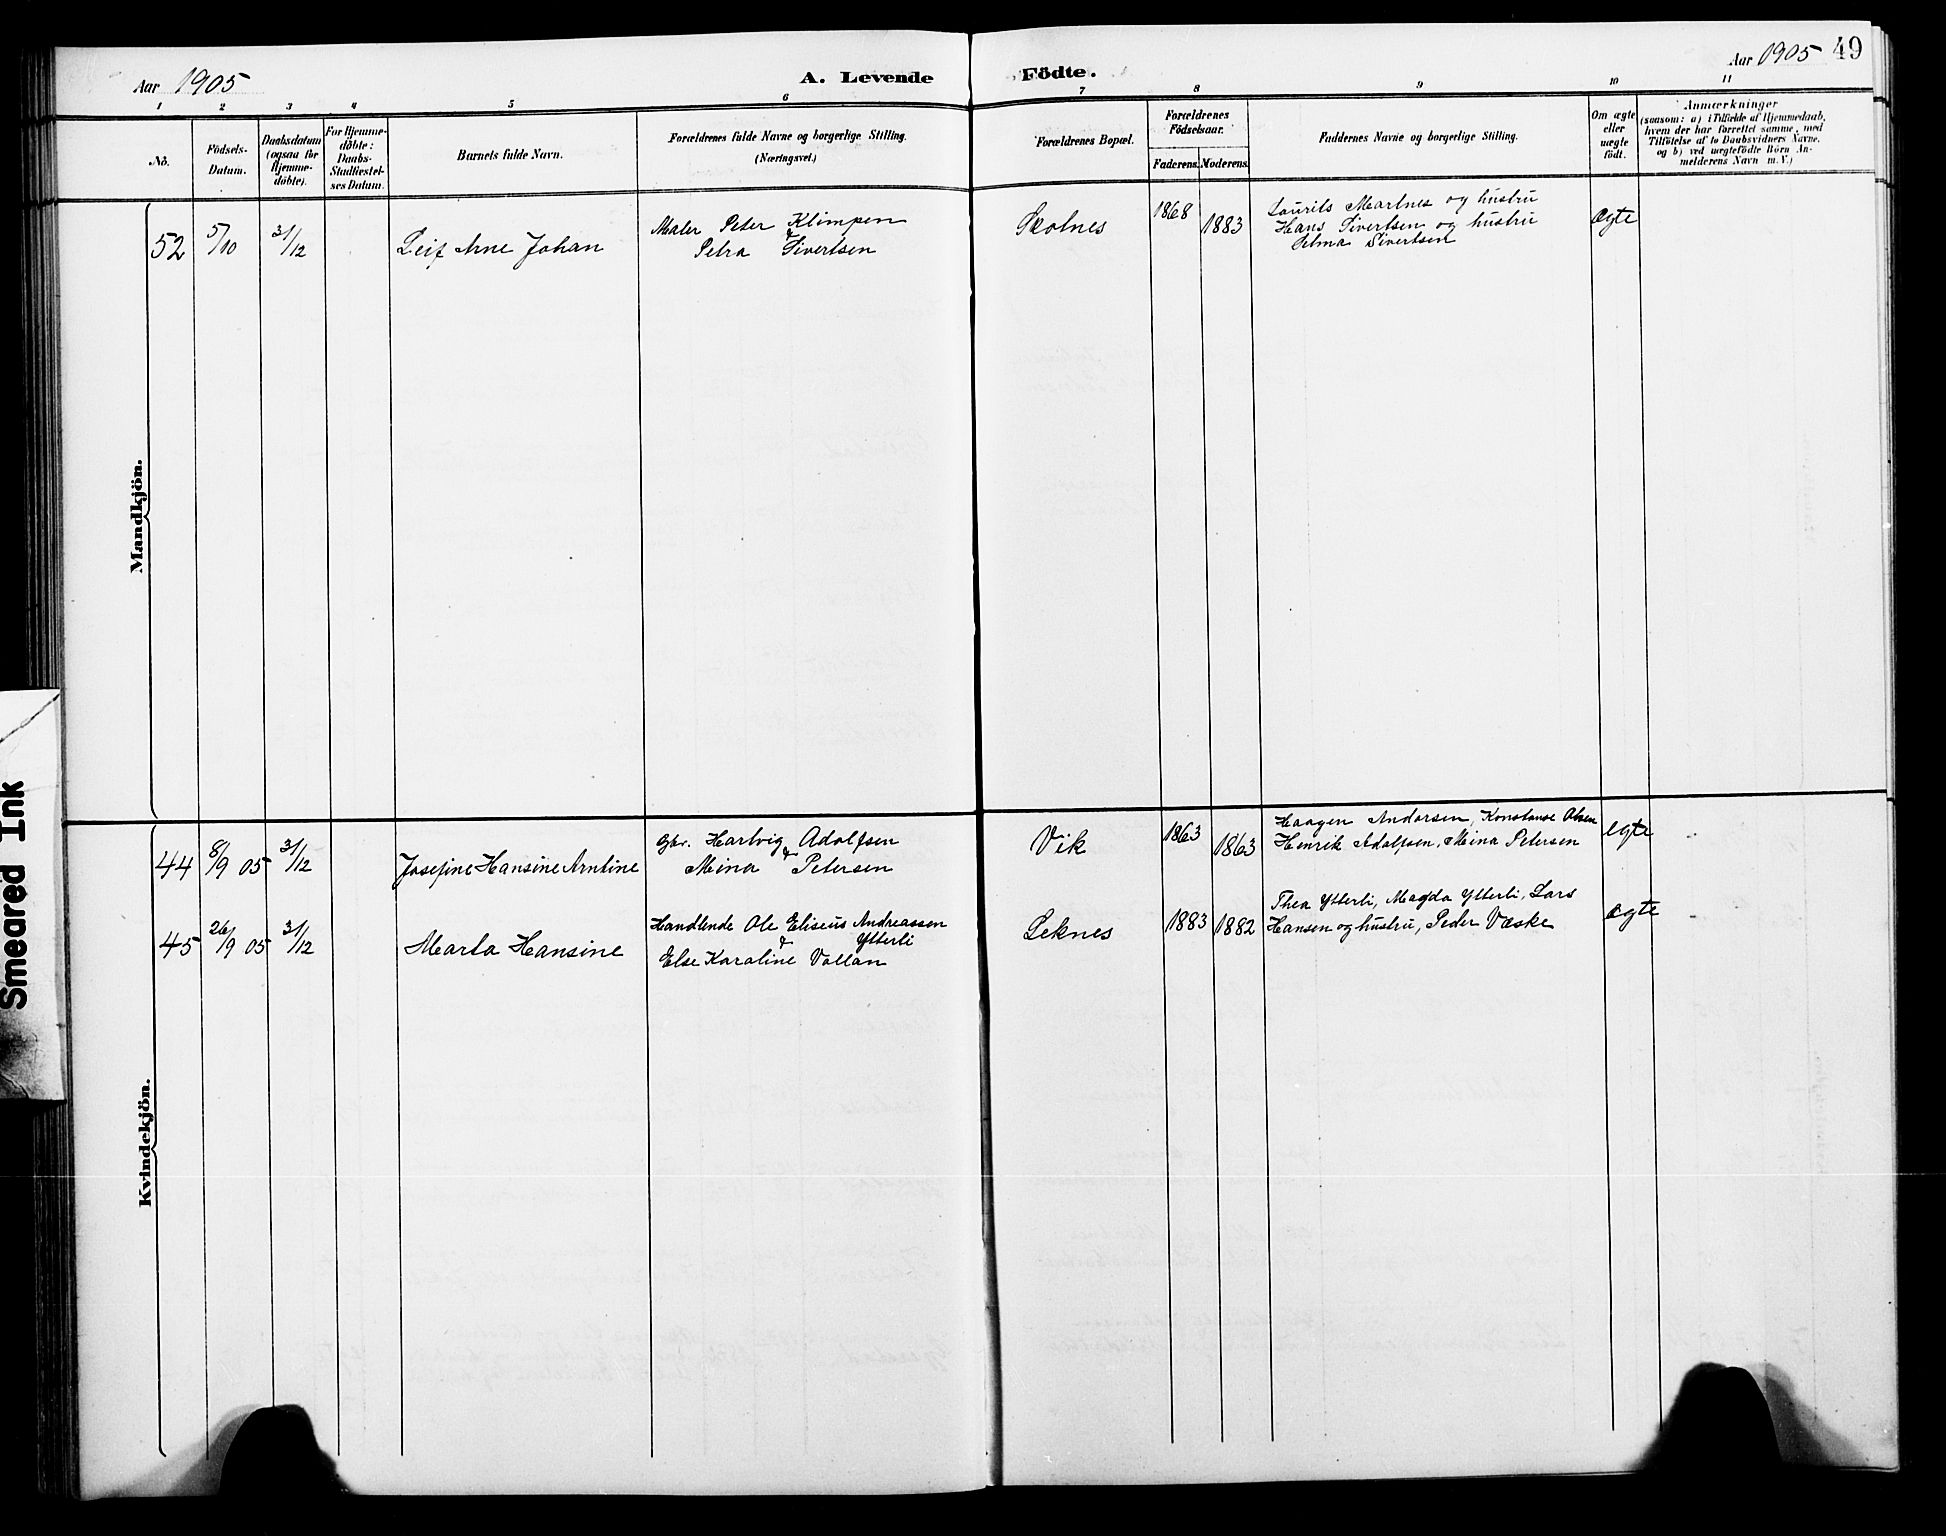 Aar 1905
A. Levende Födte.
Aar 1905 49
1 2 3 4 5 6 7 8 9 10 11
No.
Födsels-
Datum.
Daabsdatum
(ogsaa for
Hjemme-
døbte).
For Hjemme-
døbte:
Daabs-
Stadfæstel-
ses Datum.
Barnets fulde Navn.
Forældrenes fulde Navne og borgerlige Stilling.
(Næringsvei.)
Forældrenes Bopæl.
Forældrenes
Födselsaar.
Faderens. Moderens.
Faddernes Navne og borgerlige Stilling.
Om ægte
eller
uægte
født.
Anmærkninger
(saasom: a) i Tilfælde af Hjemmedaab,
hvem der har forrettet samme, med
Tilföielse af to Daabsvidners Navne,
og b) ved uægtefödte Börn An-
melderens Navn m. V.)
Mandkjön.
52 5/10 31/12 Leif Arne Johan
Maler Peter Klimpen
&
Petra Sivertsen
Skotnes 1868 1883
Laurits Martnes og hustru
Hans Sivertsen og hustru
Selma Sivertsen
Ægte
Kvindekjön.
44 8/9 05 31/12 Josefine Hansine Arntine
Gbr. Hartvig Adolfsen
&
Mina Petersen
Vik 1863 1863
Haagen Andersen, Konstanse Olsen
Henrik Adolfsen, Mina Petersen
egte
45 26/9 05 31/12 Marta Hansine
Handlende Ole Eliseus Andreassen
& Ytterli
Else Karoline Vollan
Leknes 1883 1882
Thea Ytterli, Magda Ytterli, Lars
Hansen og hustru, Peder Væske
ægte
Smeared Ink